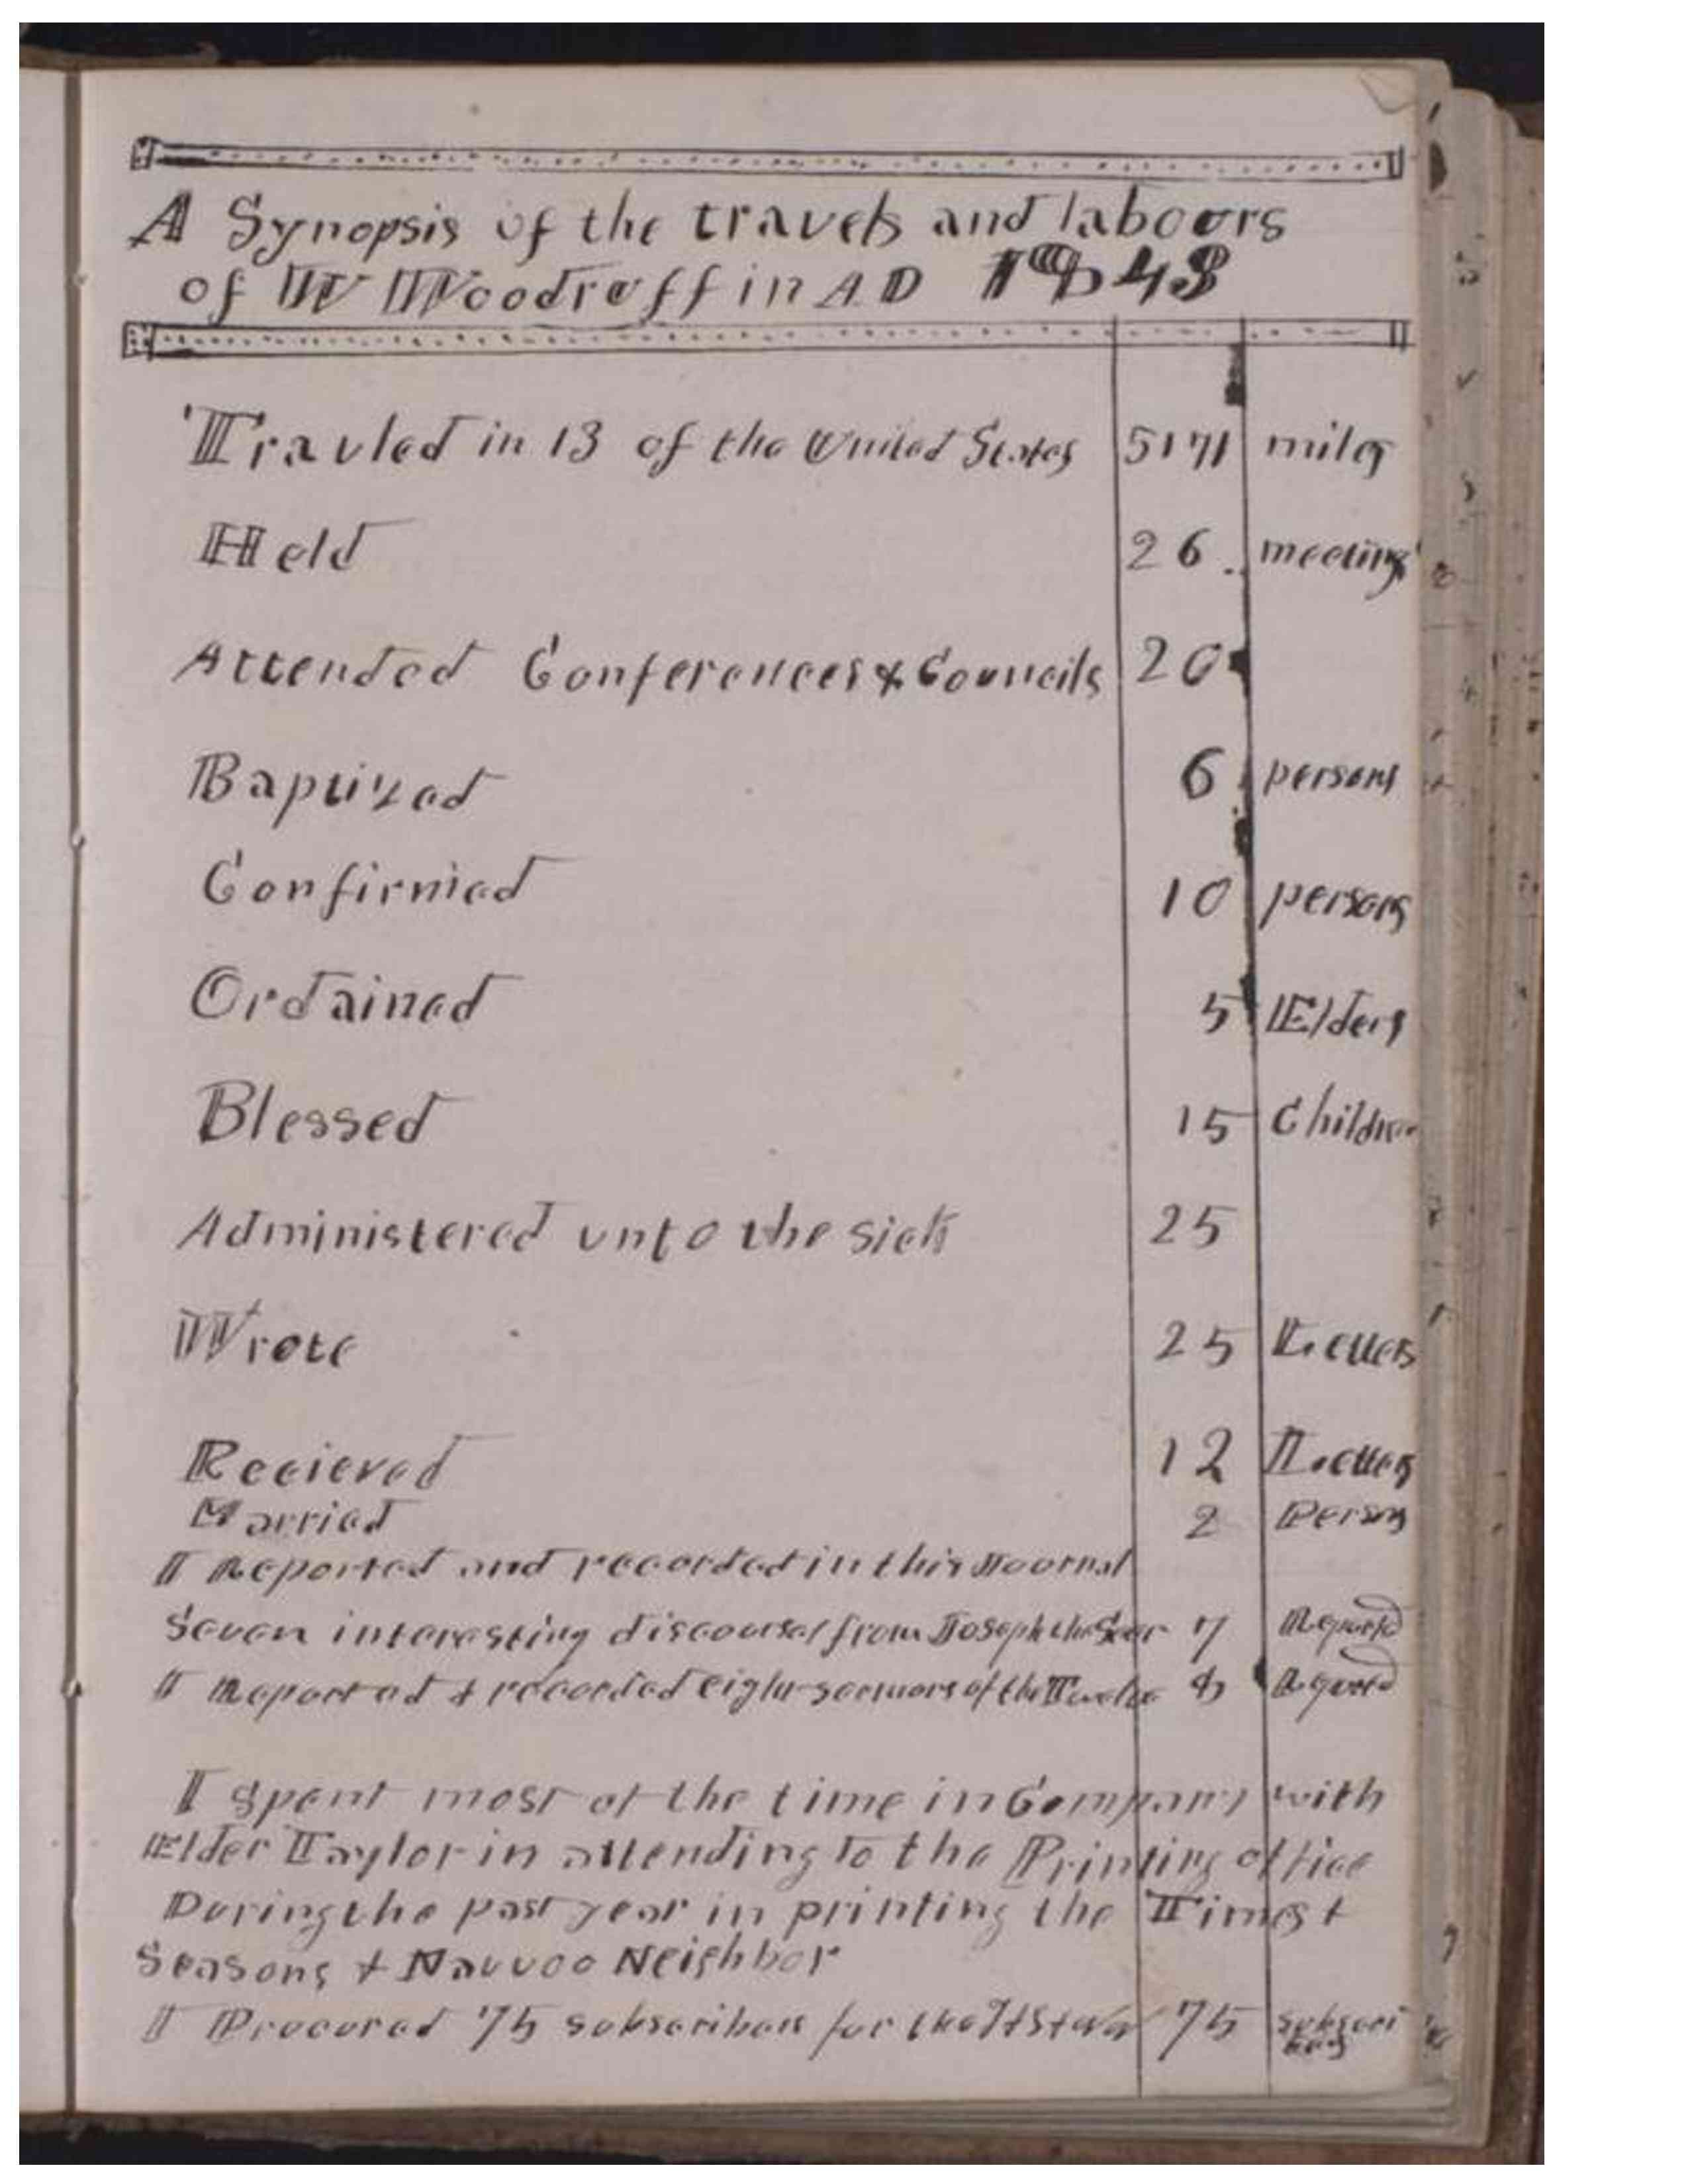 A Synopsis of the travels and labours
of W Woodruff in AD 1843
Travled in 13 of the United States 5171 miles
Held 26 meetings
Attended Conferences & Councils 20
Baptized 6 persons
Confirmed 10 persons
Ordained 5 Elders
Blessed 15 Children
Administered unto the sick 25
Wrote 25 Letters
Recieved 12 Letters
Married 2 Persons
I Reported and recorded in this Journal
Seven interesting discourses from Joseph the Seer 7 Reported
I Reported & recorded eight sermons of the Twelve 8 Reported
I spent most of the time in Company with
Elder Taylor in attending to the Printing office
During the past year in printing the Times &
Seasons & Nauvoo Neighbor
I Procured 75 subscribers for the T & S & 75 subscri
bers